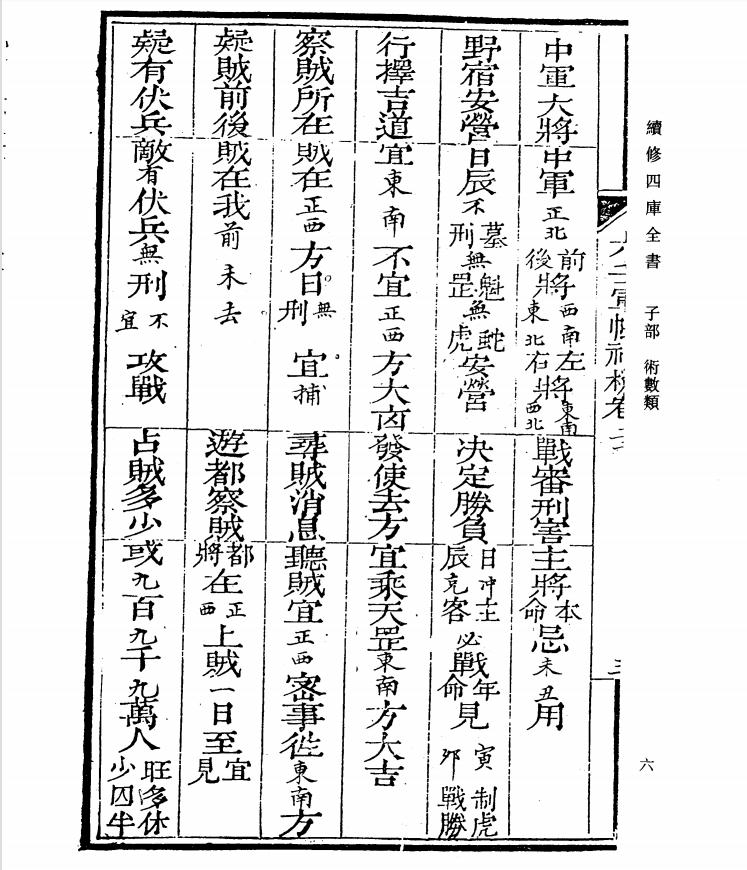 續修四庫全書 子部 術數類
六
中軍大將中軍正北前將西南後將東北左將東南右將西北
戰審刑害主將本命忌未丑用
野宿安營日辰不墓刑無魁罡無蛇虎安營
決定勝負日冲主辰克客必戰年命見寅制虎夘戰勝
行擇吉道宜東南不宜正西方大凶
發使去方宜乘天罡東南方大吉
察賊所在賊在正西方日無刑宜捕
尋賊消息聽賊宜正西密事徃東南方
疑賊前後賊在我前未去
遊都察賊都將在正西上賊一日至宜見
疑有伏兵敵有伏兵無刑不宜攻戰
占賊多少或九百九千九萬人旺多休少囚半